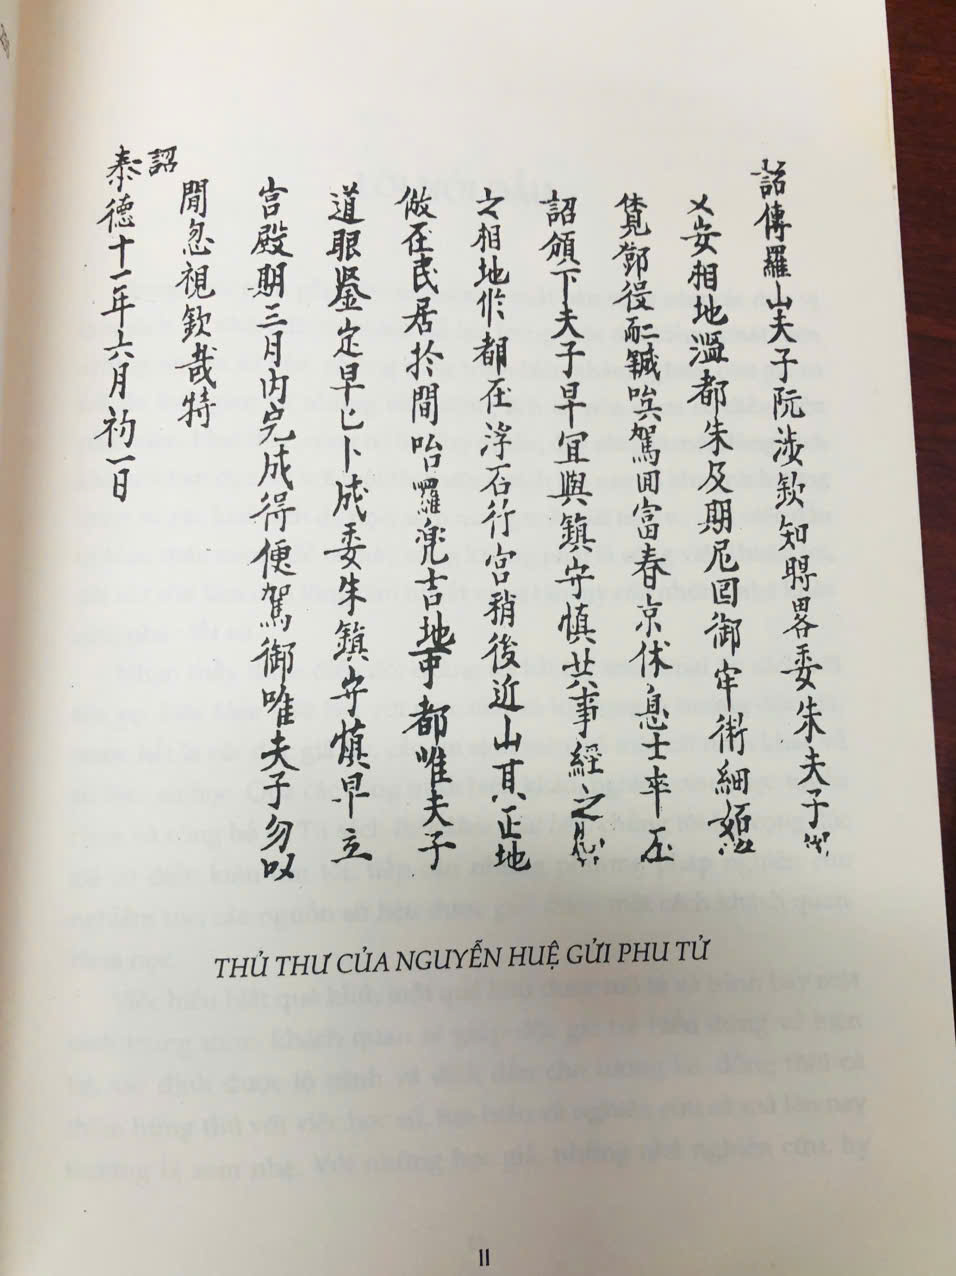 詔傳羅山夫子阮涉欽知聘畧委朱夫子
乂安相地濫都朱及期尼回御牢術細
鄧役誠唉駕回富春京休息士卒
詔頒下夫子早宜與鎮守慎共事經之
之相地作都在浮石行宮稍後近山其正地
倣在民居於間咍羅兇吉地可都唯夫子
道眼鑒定早早卜成委朱鎮守慎早立
宫殿期三月内完成得便駕御唯夫子勿以
間忽視欽哉特
詔
泰德十一年六月初一日
THỦ THƯ CỦA NGUYỄN HUỆ GỬI PHU TỬ
11